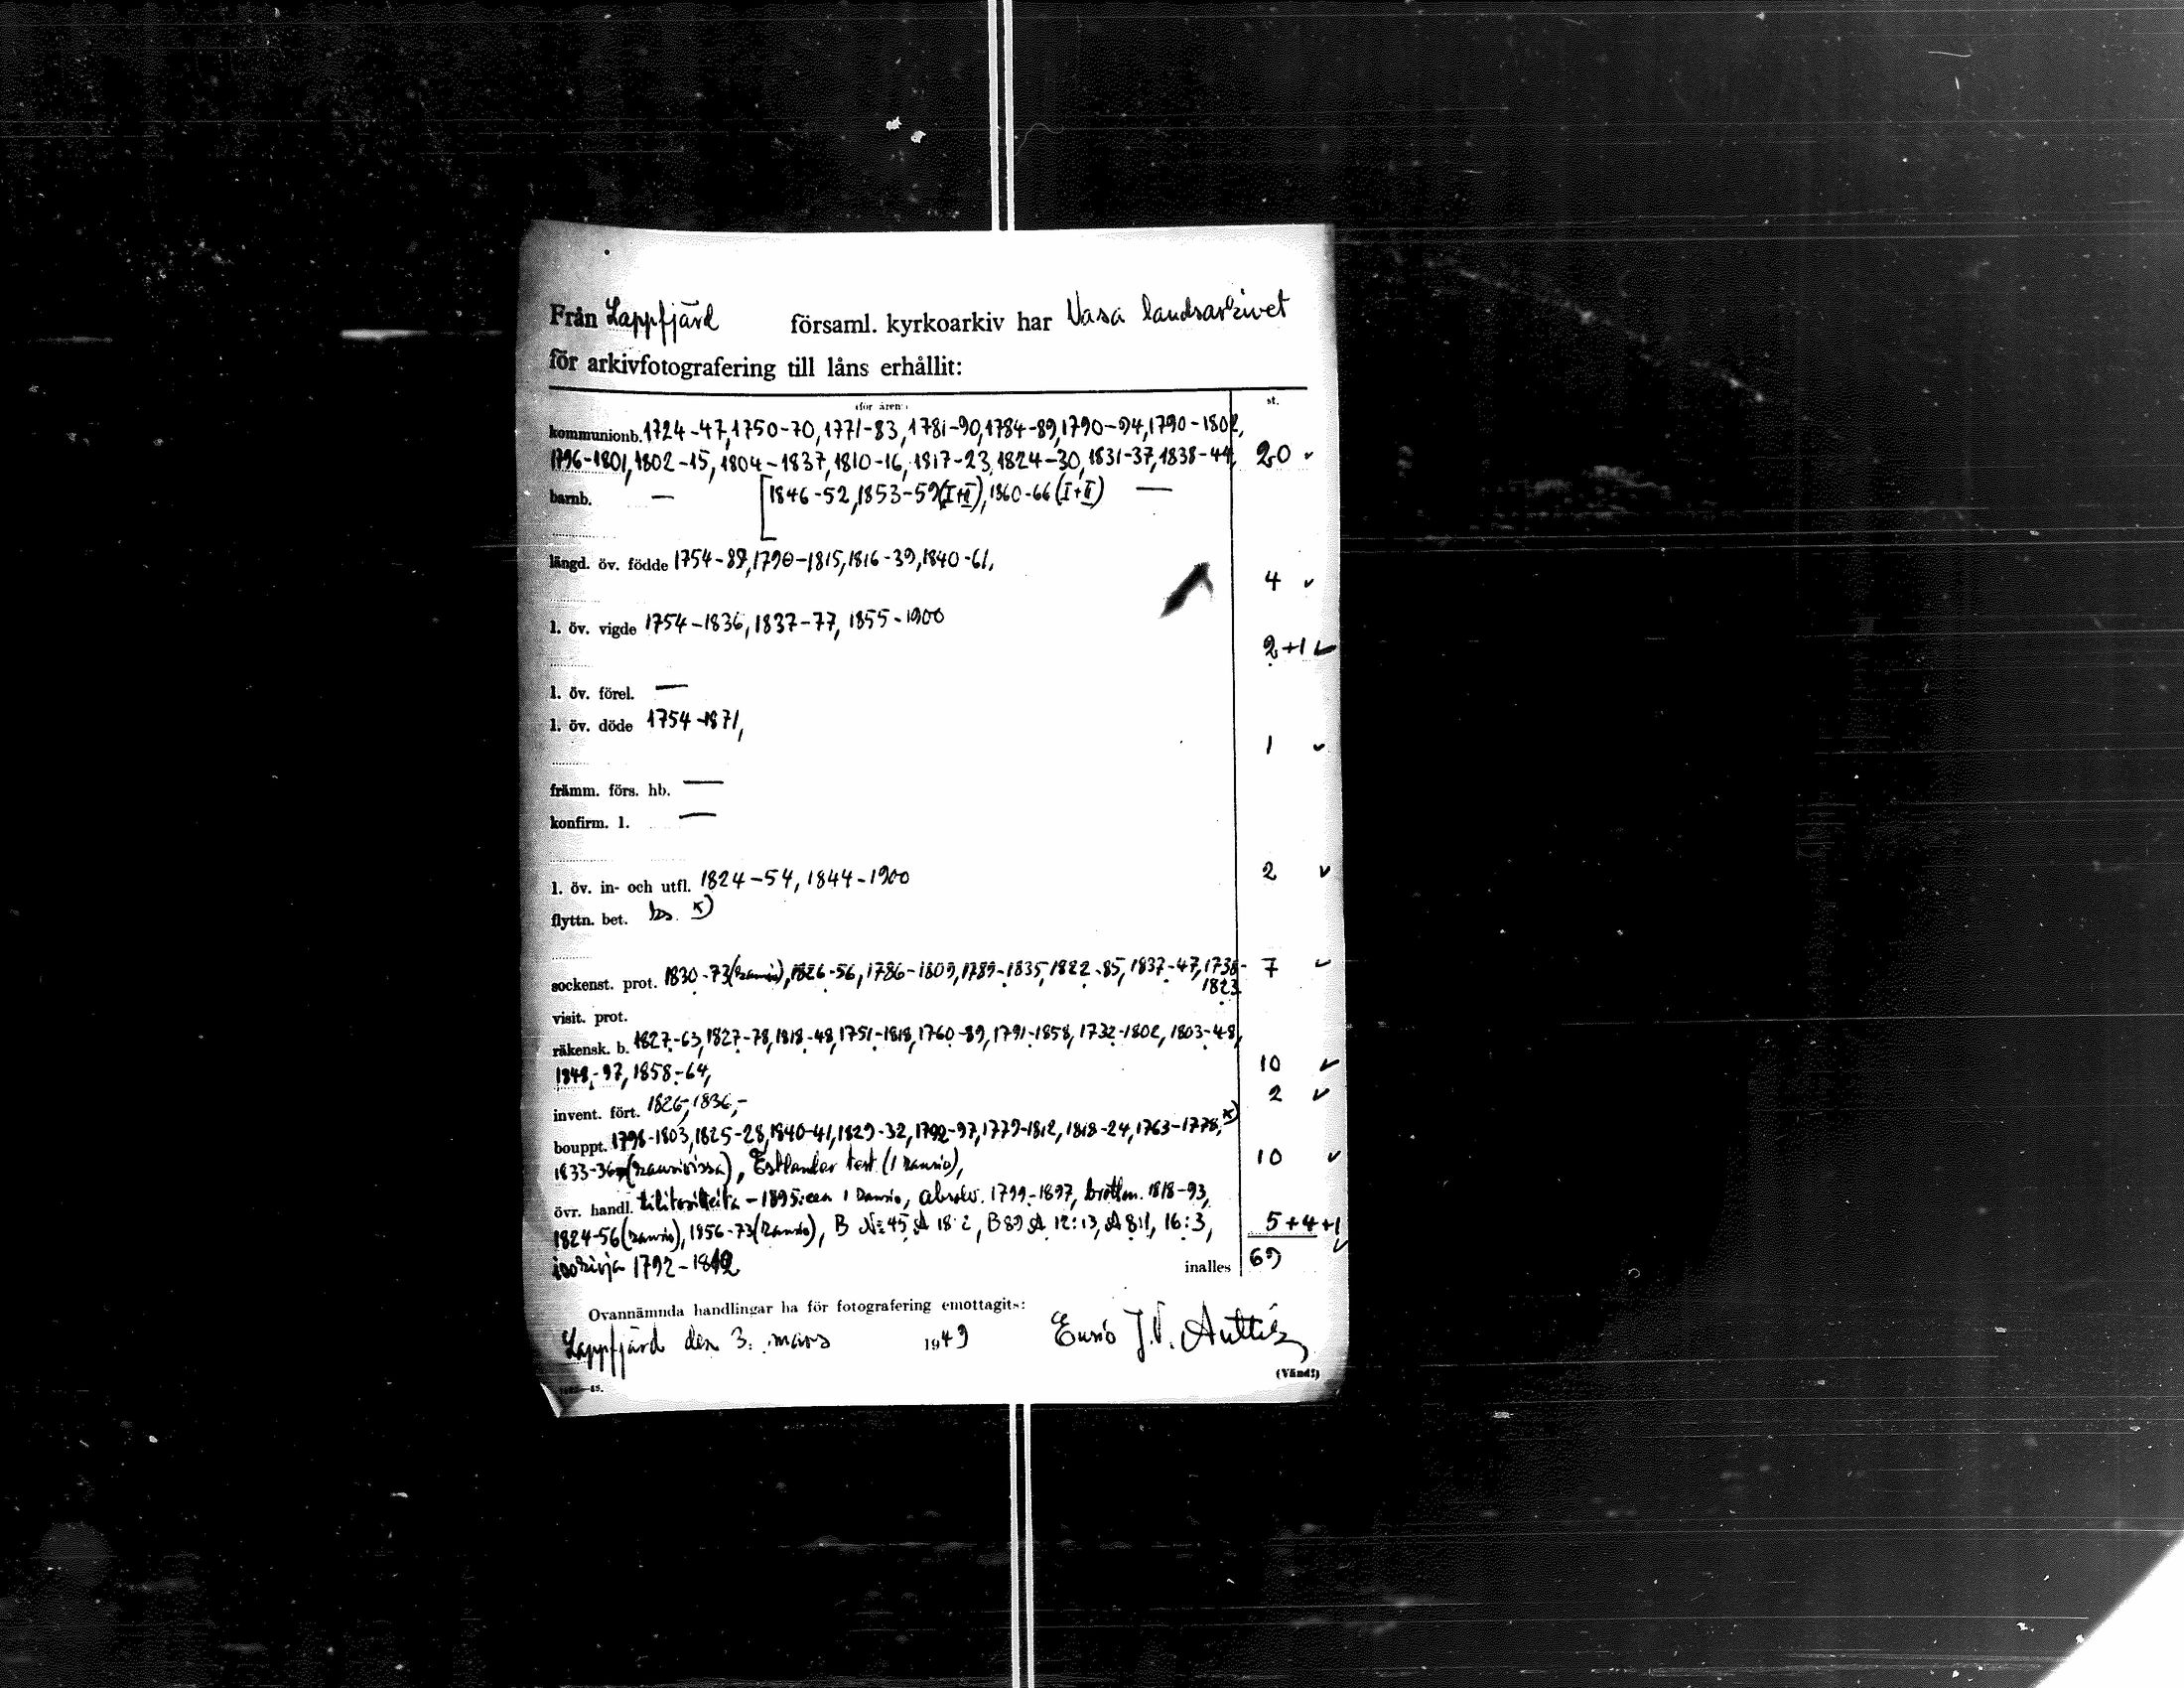 Från Lappfjärd församl. kyrkoarkiv har Vasa landsarkivet
för arkivfotografering till låns erhållit:
(för åren) st.
kommunionb. 1724-47, 1750-70, 1771-83, 1781-90, 1784-89, 1790-94, 1790-1802,
1796-1801, 1802-15, 1804-1837, 1810-16, 1817-23, 1824-30, 1831-37, 1838-44, 20
barnb. — [1846-52, 1853-59 (I+II), 1860-66 (I+II) —
längd. öv. födde 1754-89, 1790-1815, 1816-39, 1840-61,
4
l. öv. vigde 1754-1836, 1837-77, 1855-1900
2+1
l. öv. förel. —
l. öv. döde 1754-1871,
1
främm. förs. hb. —
konfirm. l. —
l. öv. in- och utfl. 1824-54, 1844-1900 2
flyttn. bet. x)
sockenst. prot. 1830-73 (kansio), 1826-56, 1786-1809, 1789-1835, 1822-85, 1837-47, 1738- 7
1823
visit. prot.
räkensk. b. 1827-63, 1827-78, 1818-48, 1751-1818, 1760-89, 1791-1858, 1732-1802, 1803-48,
1848-97, 1858-64, 10
invent. fört. 1826, 1836,- 2
bouppt. 1798-1803, 1825-28, 1840-41, 1829-32, 1792-97, 1779-1812, 1818-24, 1763-1778, x)
1833-36 (kansioissa), Estlander test. (1 kansio), 10
övr. handl. tilitositteita -1895:een 1 kansio, absolv. 1799-1897, brottm. 1818-93,
1824-56 (kansio), 1856-73 (kansio), B No 45 A 18:2, B 89 A 12:13, A 8:1, 16:3, 5+4+1
isokirja 1792-1812 inalles 69
Ovannämnda handlingar ha för fotografering emottagits:
Lappfjärd den 3. mars 1949 J.V. Anttila
(Vänd!)